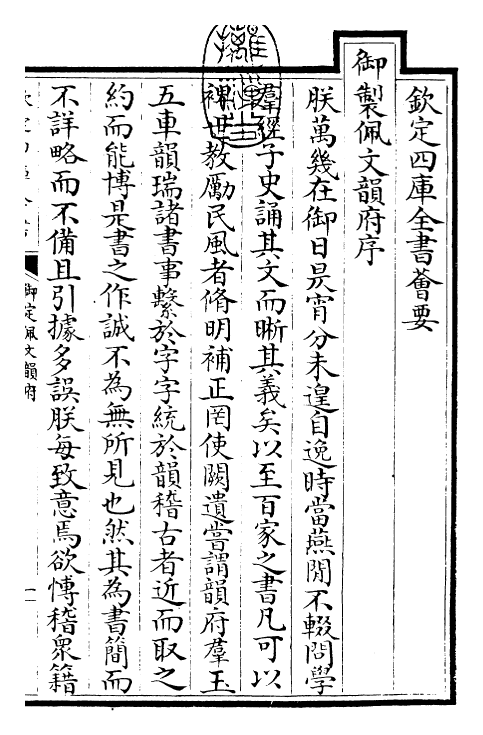 欽定四庫全書薈要
御製佩文韻府序
朕萬幾在御日昃宵分未遑自逸時當燕閒不輟問學
羣經子史誦其文而晰其義矣以至百家之書凡可以
裨世教勵民風者脩明補正罔使闕遺嘗謂韻府羣玉
五車韻瑞諸書事繫於字字統於韻稽古者近而取之
約而能博是書之作誠不為無所見也然其為書簡而
不詳略而不備且引據多誤朕每致意焉欲愽稽眾籍
御定佩文韻府
一